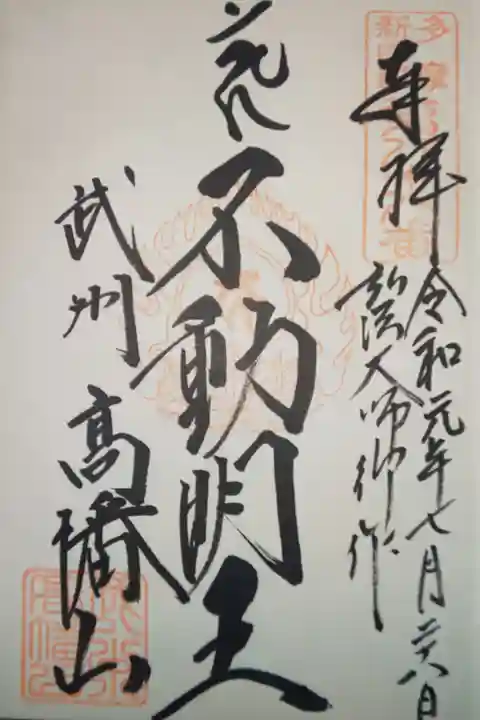 奉拝 令和元年七月廿八日
弘法大師御作
不動明王
武州 高幡山